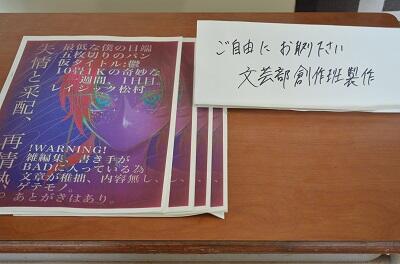 ご自由にお取り下さい
文芸部創作班製作
失情と采配、再情熱。
最低な僕の日端
五枚切りのパン
仮タイトル:鬱
10畳1Kの奇妙な
一週間、1日目
レイジック松村
!WARNING!
雑編集、書き手が
BADに入っている為
文章が稚拙、内容無し、
ゲテモノ。
あとがきはあり。